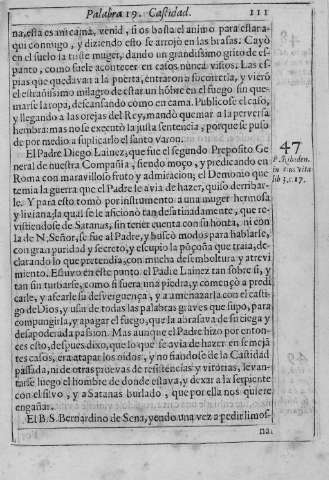 Palabra 19. Castidad. 111
na, esta es mi cama, venid, si os basta el animo para estar a-
qui conmigo, y diziendo esto se arrojò en las brasas. Cayò
en el suelo la triste muger, dando un grandissimo grito de es-
panto, como suele acontecer en casos nunca vistos: Las es-
pias que quedavan a la puerta, entraron a socorrerla, y vierõ
el estrañissimo milagro de estar un hõbre en el fuego sin que-
marse la ropa, descansando como en cama. Publicose el caso,
y llegando a las orejas del Rey, mandò quemar a la perversa
hembra: mas no se executò la justa sentencia, porque se puso
de por medio a suplicarlo el santo varon.
El Padre Diego Lainez, que fue el segundo Preposito Ge
neral de nuestra Compañia, siendo moço, y predicando en
Roma con maravilloso fruto y admiracion; el Demonio que
temia la guerra que el Padre le avia de hazer, quiso derribar-
le. Y para esto tomò por instrumento a una muger hermosa
y liviana; la qual se le aficionò tan desatinadamente, que re-
vistiendose de Satanas, sin tener cuenta con su honta, ni con
la de N. Señor, se fue al Padre, y buscò modos para hablarle,
con gran puridad y secreto, y escupio la põçoña que traia, de-
clarando lo que pretendia, con mucha desemboltura y atrevi
miento. Estuvo en este punto el Padre Lainez tan sobre si, y
tan sin turbarse, como si fuera una piedra, y començò a predi
carle, y afearle su desverguença, y a amenazarla con el casti-
go de Dios, y usar de todas las palabras graves que supo, para
compungirla, y apagar el fuego, que la abrasava de su ciega y
desapoderada passion. Mas aunque el Padre hizo por enton-
ces esto, despues dixo, que lo que se avia de hazer en semejã
tes casos, era atapar los oidos, y no fiandose de la Castidad
passada, ni de otras pruevas de resistencias y vitorias, levan-
tarse luego el hombre de donde estava, y dexar a la serpiente
con el silvo, y a Satanas burlado, que por ella nos quiere
engañar.
El B. S. Bernardino de Sena, yendo una vez a pedir limos-
na.
47
P. Ribaden.
in eius vita
lib 3. c. 17.